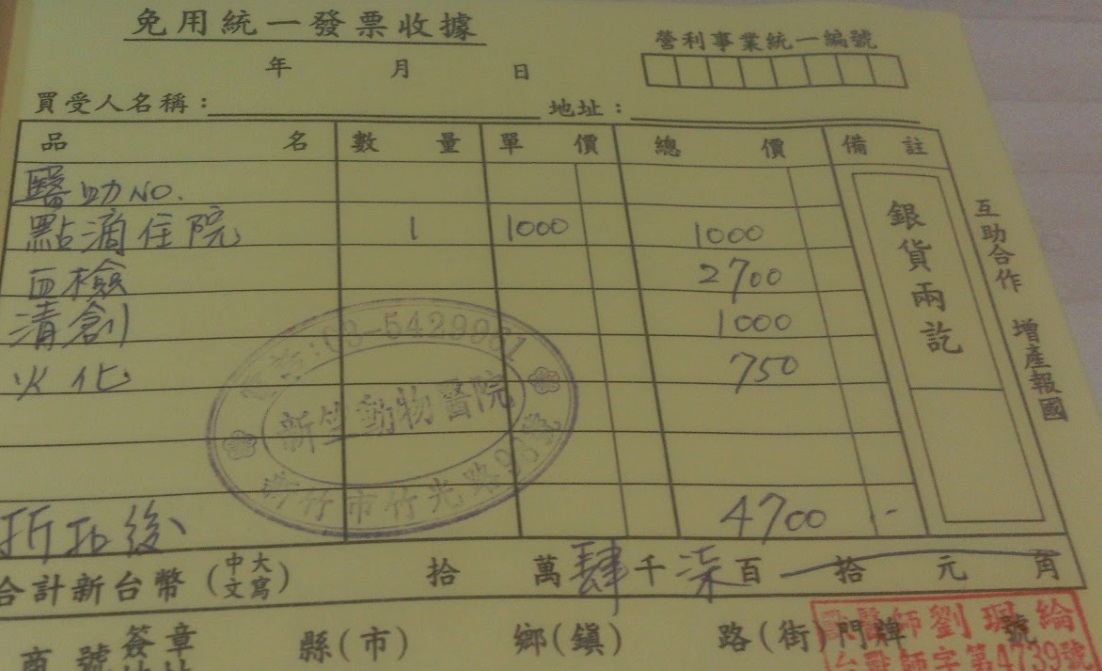 免用統一發票收據
營利事業統一編號
年 月 日
買受人名稱： 地址：
品名 數量 單價 總價 備註
醫助NO.
點滴住院 1 1000 1000
血檢 2700
清創 1000
火化 750
折扣後 4700 -
銀貨兩訖
互助合作 增產報國
新竺動物醫院
新竹市竹光路
合計新台幣（中文大寫） 拾 萬 肆 千 柒 百 拾 元 角
商號簽章 縣(市) 鄉(鎮) 路(街) 門牌 號
醫師劉
字第4739號